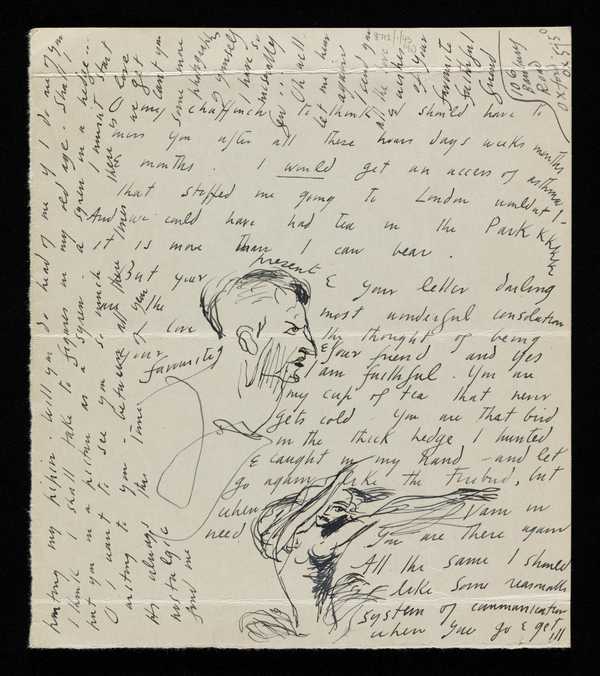 my chaffinch to think I should have to
miss you after all these hours days weeks months
months. I would get an access of asthma
that stopped me going to London wouldnt I -
And we could have had tea in the Park KKKKK
it is more than I can bear.
But your present & your letter darling
are the most wonderful consolation
the thought of being
& your friend and yes
I am faithful. You are
my cup of tea that never
gets cold. You are that bird
in the thick hedge I hunted
& caught in my hand - and let
go again like the Firebird, but
when I am in
need You are there again
All the same I should
like some reasonable
system of communication
when you go & get ill
painting my pipin. Will you do head of me if I do one of you
I think I shall take to figures in my old age. Shall I
put you in a picture as a syren - a syren in a hedge...
O I want to see you so much
I must start
writing to you - between all these times
there is love
As always this time
nostalgic
your favourite
of you
love
send me
we get
cant you
some more
photographs
of yourself
I have so
miserably
few... Oh well.
Let me hear
again.
send you
all the love
wishes
of your
favourite
faithful
friend
106
Banbury
Road
Oxford